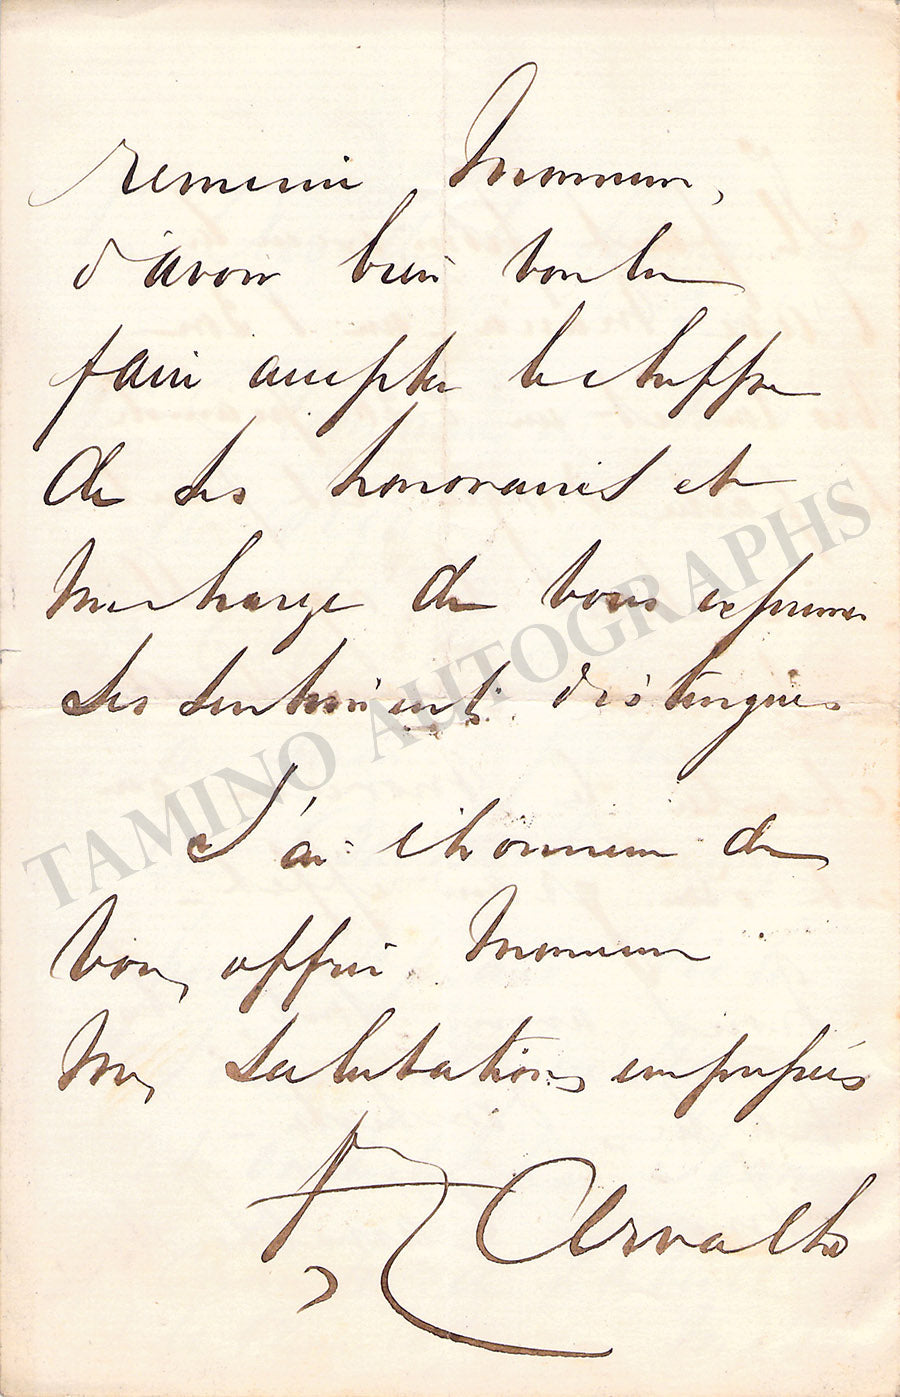 remercie, Monsieur,
d'avoir bien voulu
faire accepter le chiffre
de ses honoraires et
me charge de vous exprimer
ses sentiments distingués
J'ai l'honneur de
vous offrir Monsieur
mes salutations empressées
Carvalho
TAMINO AUTOGRAPHS